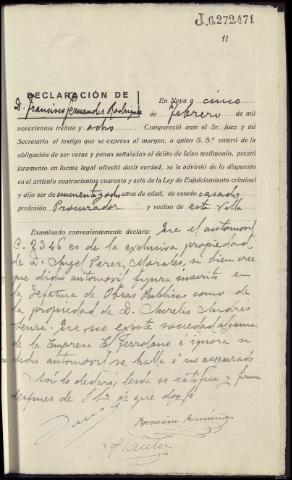 J.6272471
11
DECLARACIÓN DE
D. Francisco Fernandez Rodriguez
En Noya a cinco
de febrero de mil
novecientos treinta y ocho. Compareció ante el Sr. Juez y mi
Secretario el testigo que se expresa al margen, a quien S. Sª enteró de la
obligación de ser veraz y penas señaladas al delito de falso testimonio, prestó
juramento en forma legal ofreció decir verdad, se la advirtió de lo dispuesto
en el artículo cuatrocientos cuarenta y seis de la Ley de Enjuiciamiento criminal
y dijo ser de cincuenta y dos años de edad, de estado casado
profesión Procurador y vecino de esta villa
Examinado convenientemente declara: Que el automovil
C. 2346 es de la exclusiva propiedad
de D. Angel Perez Morales, si bien cree
que dicho automovil figura inscrito en
la Jefatura de Obras Publicas como de
la propiedad de D. Aurelio Andrés
Que no existe sociedad alguna
de la Empresa El Ferrolano é ignora si
dicho automovil se halla ó no asegurado
Así lo declara, leida se ratifica y firma
despues de S. Sª de que doy fe